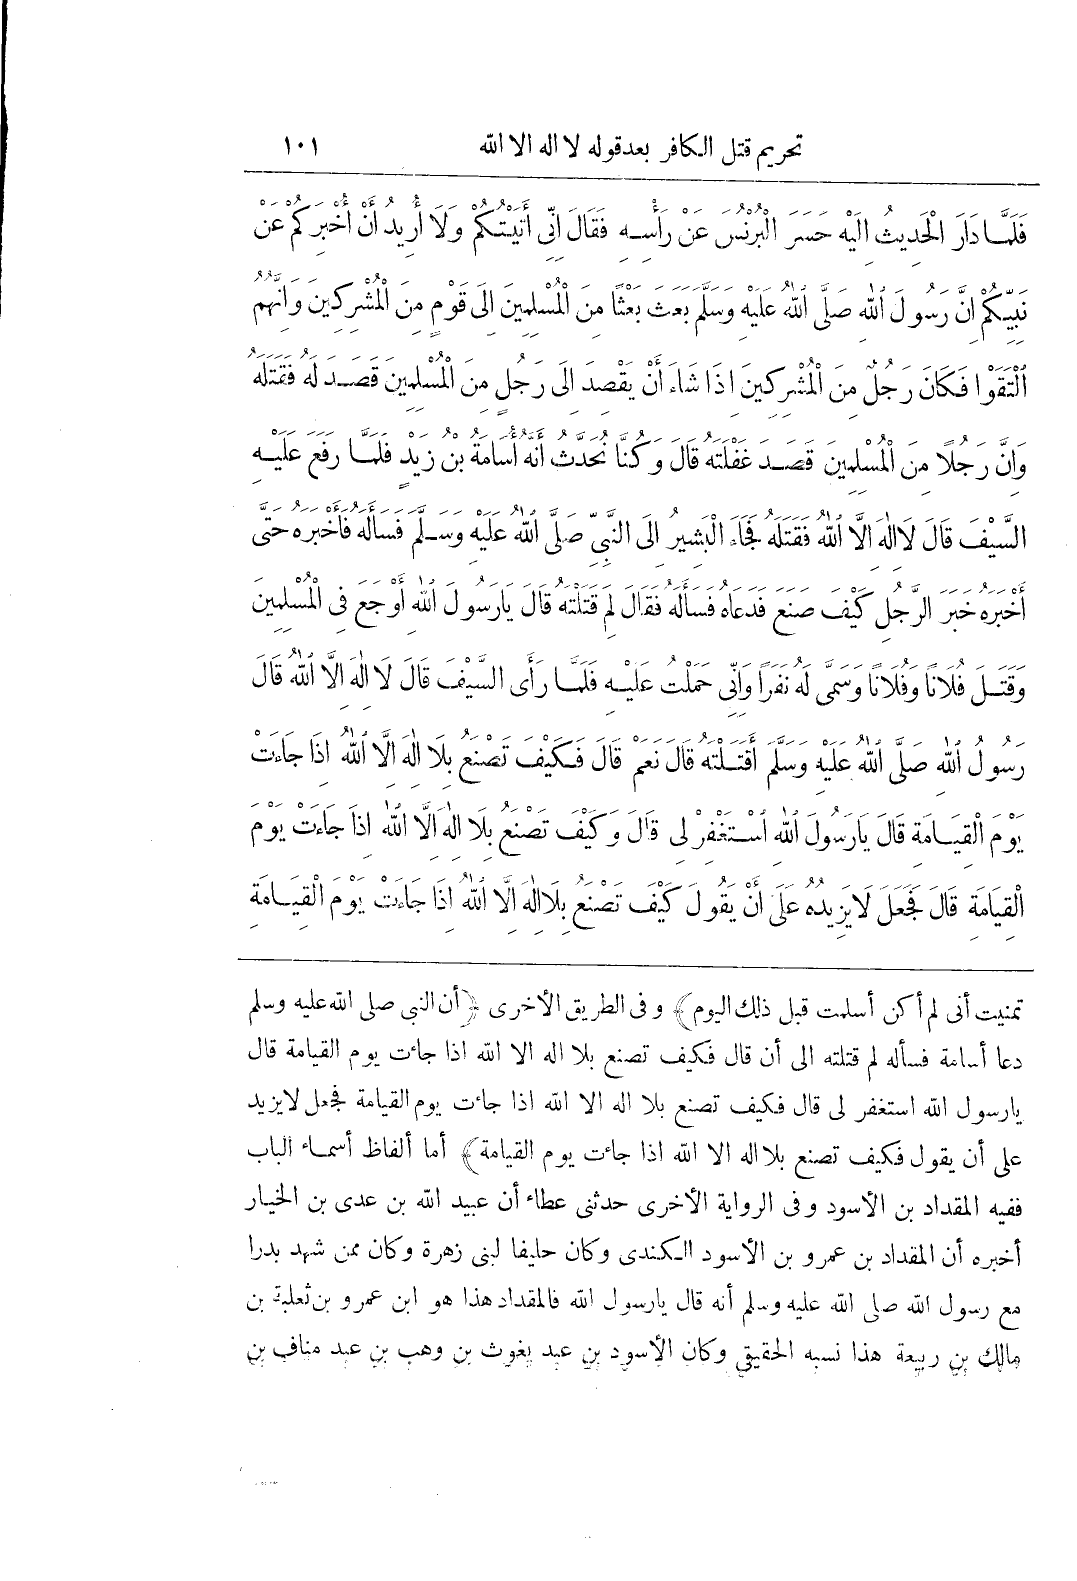 تحريم قتل الكافر بعد قوله لا اله الا الله ١٠١
فَلَمَّا دَارَ الْحَدِيثُ الَيْهِ حَسَرَ الْبُرْنُسَ عَنْ رَأْسِهِ فَقَالَ انِّى أَتَيْتُكُمْ وَلَا أُرِيدُ أَنْ أُخْبِرَكُمْ عَنْ
نَبِيِّكُمْ انَّ رَسُولَ اللهِ صَلَّى اللهُ عَلَيْهِ وَسَلَّمَ بَعَثَ بَعْثًا مِنَ الْمُسْلِمِينَ الَى قَوْمٍ مِنَ الْمُشْرِكِينَ وَانَّهُمُ
الْتَقَوْا فَكَانَ رَجُلٌ مِنَ الْمُشْرِكِينَ اذَا شَاءَ أَنْ يَقْصِدَ الَى رَجُلٍ مِنَ الْمُسْلِمِينَ قَصَدَ لَهُ فَقَتَلَهُ
وَانَّ رَجُلًا مِنَ الْمُسْلِمِينَ قَصَدَ غَفْلَتَهُ قَالَ وَكُنَّا نُحَدَّثُ أَنَّهُ أُسَامَةُ بْنُ زَيْدٍ فَلَمَّا رَفَعَ عَلَيْهِ
السَّيْفَ قَالَ لَا الَهَ الَّا اللهُ فَقَتَلَهُ فَجَاءَ الْبَشِيرُ الَى النَّبِىِّ صَلَّى اللهُ عَلَيْهِ وَسَلَّمَ فَسَأَلَهُ فَأَخْبَرَهُ حَتَّى
أَخْبَرَهُ خَبَرَ الرَّجُلِ كَيْفَ صَنَعَ فَدَعَاهُ فَسَأَلَهُ فَقَالَ لِمَ قَتَلْتَهُ قَالَ يَارَسُولَ اللهِ أَوْجَعَ فِى الْمُسْلِمِينَ
وَقَتَلَ فُلَانًا وَفُلَانًا وَسَمَّى لَهُ نَفَرًا وَانِّى حَمَلْتُ عَلَيْهِ فَلَمَّا رَأَى السَّيْفَ قَالَ لَا الَهَ الَّا اللهُ قَالَ
رَسُولُ اللهِ صَلَّى اللهُ عَلَيْهِ وَسَلَّمَ أَقَتَلْتَهُ قَالَ نَعَمْ قَالَ فَكَيْفَ تَصْنَعُ بِلَا الَهَ الَّا اللهُ اذَا جَاءَتْ
يَوْمَ الْقِيَامَةِ قَالَ يَارَسُولَ اللهِ اسْتَغْفِرْ لِى قَالَ وَكَيْفَ تَصْنَعُ بِلَا الَهَ الَّا اللهُ اذَا جَاءَتْ يَوْمَ
الْقِيَامَةِ قَالَ فَجَعَلَ لَا يَزِيدُهُ عَلَى أَنْ يَقُولَ كَيْفَ تَصْنَعُ بِلَا الَهَ الَّا اللهُ اذَا جَاءَتْ يَوْمَ الْقِيَامَةِ
تمنيت أنى لم أكن أسلمت قبل ذلك اليوم﴾ وفى الطريق الأخرى ﴿أن النبى صلى الله عليه وسلم
دعا أسامة فسأله لم قتلته الى أن قال فكيف تصنع بلا اله الا الله اذا جاءت يوم القيامة قال
يارسول الله استغفر لى قال فكيف تصنع بلا اله الا الله اذا جاءت يوم القيامة فجعل لايزيد
على أن يقول فكيف تصنع بلا اله الا الله اذا جاءت يوم القيامة﴾ أما ألفاظ أسماء الباب
ففيه المقداد بن الأسود وفى الرواية الأخرى حدثنى عطاء أن عبيد الله بن عدى بن الخيار
أخبره أن المقداد بن عمرو بن الأسود الكندى وكان حليفا لبنى زهرة وكان ممن شهد بدرا
مع رسول الله صلى الله عليه وسلم أنه قال يارسول الله فالمقداد هذا هو ابن عمرو بن ثعلبة بن
مالك بن ربيعة هذا نسبه الحقيقى وكان الأسود بن عبد يغوث بن وهب بن عبد مناف بن